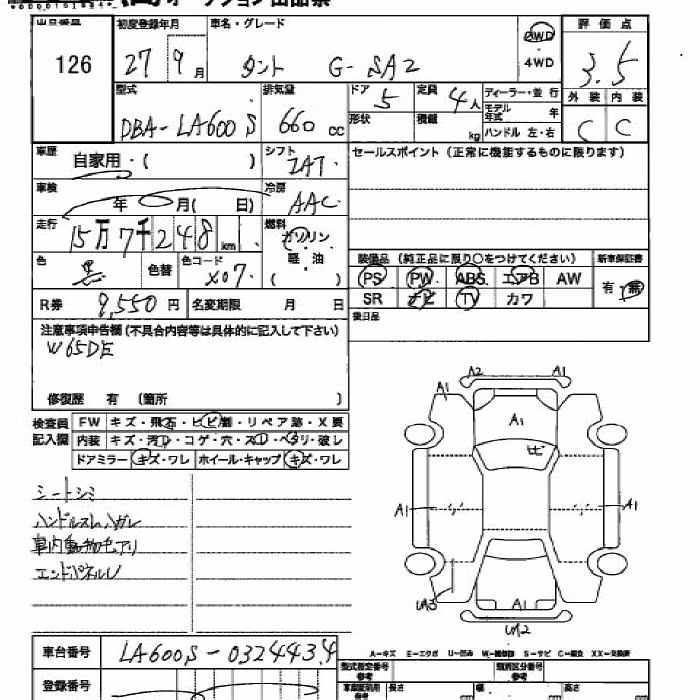 126
初度登録年月
27 9月
車名・グレード
タント G-SA2
2WD
・
4WD
評価点
3.5
外装 内装
C C
型式
DBA-LA600S
排気量
660 cc
ドア
5
定員
4人
ディーラー・並行
モデル年式 年
ハンドル 左・右
形状
積載 kg
車歴
自家用・( )
シフト
IAT
セールスポイント (正常に機能するものに限ります)
車検
年 月( 日)
冷房
AAC
走行
15万7千248km
燃料
ガソリン
軽・油
( )
色
黒
色替
色コード
X07
装備品 (純正品に限り○をつけてください)
新車保証書
PS PW ABS エアB AW
有・無
SR ナビ TV カワ
R券 9,550円
名変期限 月 日
後日品
注意事項申告欄 (不具合内容等は具体的に記入して下さい)
W65DE
修復歴 有 (箇所 )
検査員
記入欄
FW キズ・飛石・ヒビ割・リペア跡・X要
内装 キズ・汚れ・コゲ・穴・スレ・ヘタリ・破レ
ドアミラー キズ・ワレ ホイール・キャップ キズ・ワレ
シートシミ
ハンドルスレ、ハガレ
車内動物毛アリ
エンドパネルU
A2 A1
A1
A1
A1 A1
UA3 A1
UA2
A-キズ E-エクボ U-凹み W-補修跡 S-サビ C-腐食 XX-交換済
車台番号
LA600S-0324434
登録番号
型式指定番号
参考
類別区分番号
参考
長さ 幅 高さ